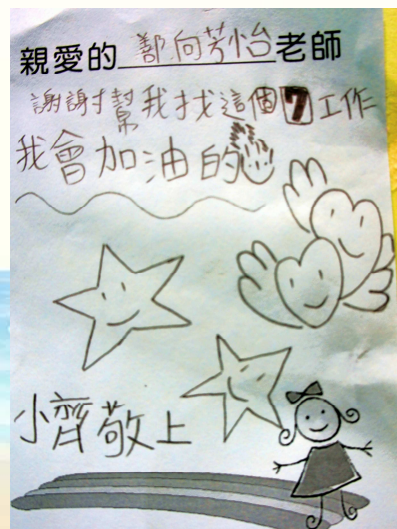 親愛的 鄒向芳怡老師
謝謝幫我找這個7工作
我會加油的
小齊敬上